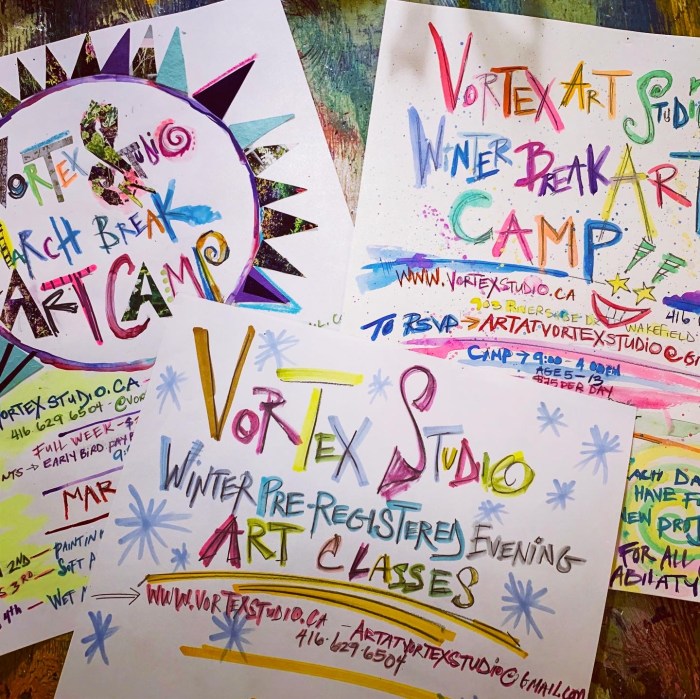 VORTEX STUDIO
MARCH BREAK
ART CAMP
VORTEXSTUDIO.CA
416 629 6504 - @VOR
FULL WEEK - $
EARLY BIRD
MAR
2ND — PAINTIN
SOFT
WET
VORTEX ART STUDIO
WINTER BREAK ART
CAMP!!
WWW.VORTEXSTUDIO.CA
416
903 RIVERSIDE DR WAKEFIELD
TO RSVP → ARTATVORTEXSTUDIO@G
CAMP → 9:00 - 4
AGES 5 - 13
$75 PER DAY
EACH DA
HAVE F
NEW PROJ
FOR ALL
ABILATY
VORTEX STUDIO
WINTER PRE-REGISTERED EVENING
ART CLASSES
WWW.VORTEXSTUDIO.CA - ARTATVORTEXSTUDIO@GMAIL.COM
416·629·6504